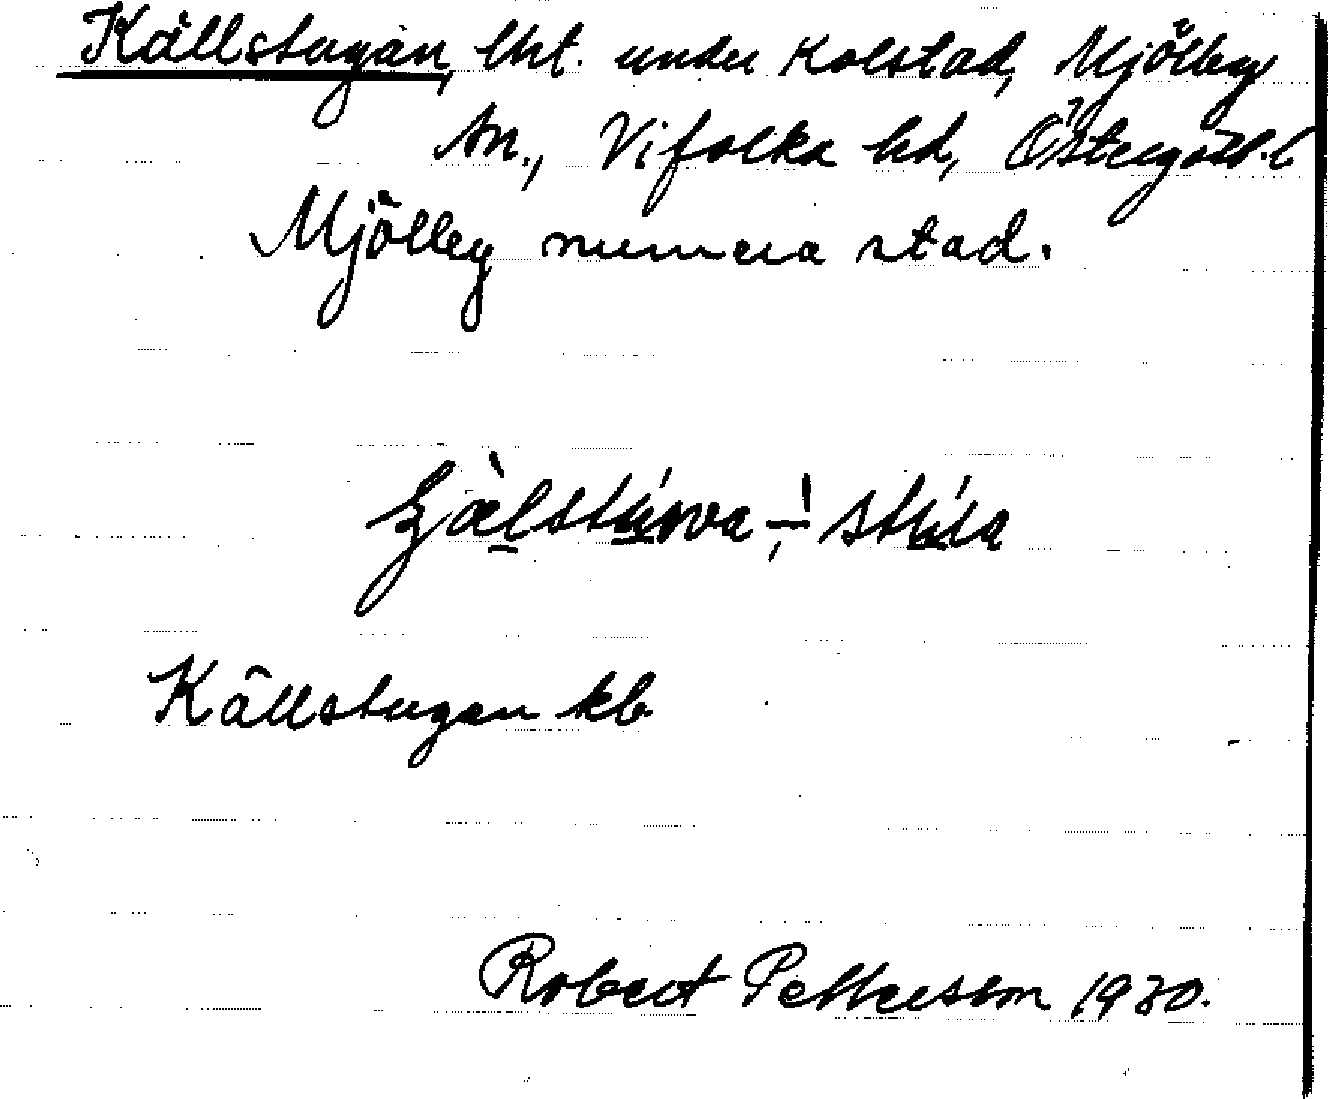 Källstugan, lht. under Kolstad, Mjölby
sn., Vifolka hd, Östergötl. l
Mjölby numera stad.
Källstugan kb
Robert Pettersson 1930.